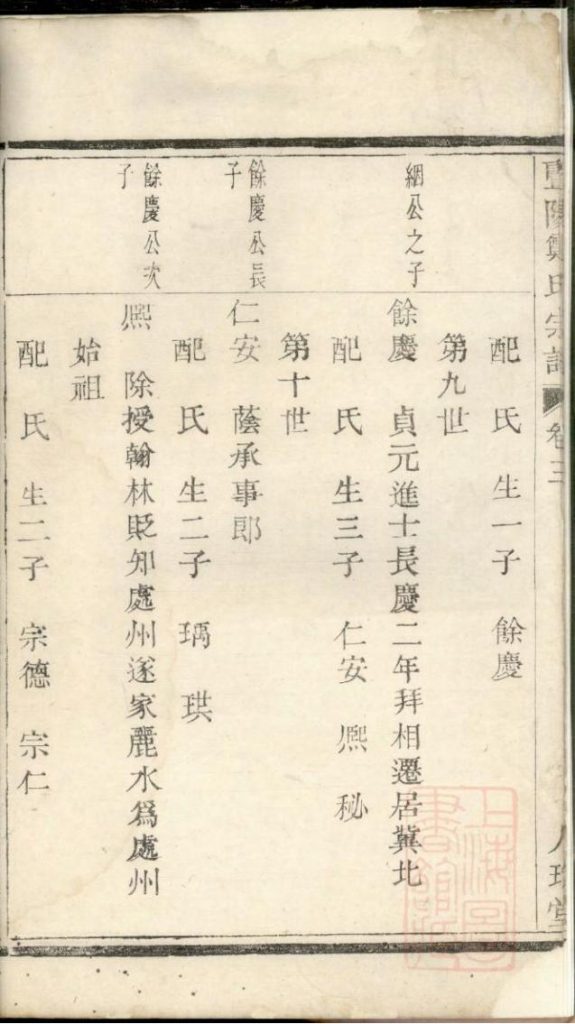 暨陽鄭氏宗譜 卷三
配 氏 生一子 餘慶
第九世
絪公之子
餘慶 貞元進士長慶二年拜相遷居冀北
配 氏 生三子 仁安 熈 秘
第十世
餘慶公長子
仁安 蔭承事郎
配 氏 生二子 瑀 珙
餘慶公次子
熈 除授翰林貶知處州遂家麗水爲處州
始祖
配 氏 生二子 宗德 宗仁
上海圖書館